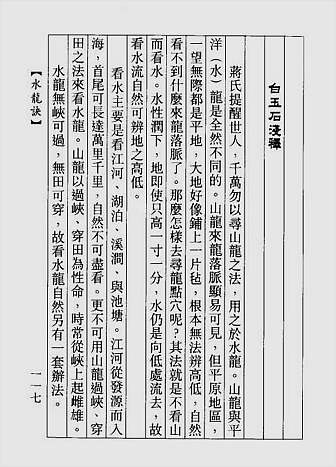 白玉石淺釋
蔣氏提醒世人，千萬勿以尋山龍之法，用之於水龍。山龍與平
洋（水）龍是全然不同的。山龍來龍落脈顯易可見，但平原地區，
一望無際都是平地，大地好像鋪上一片毡，根本無法辨高低，自然
看不到什麼來龍落脈了。那麼怎樣去尋龍點穴呢？其法就是不看山
而看水。水性潤下，地即使只高一寸一分，水仍是向低處流去，故
看水流自然可辨地之高低。
看水主要是看江河、湖泊、溪澗、與池塘。江河從發源而入
海，首尾可長達萬里千里，自然不可盡看。更不可用山龍過峽、穿
田之法來看水龍。山龍以過峽、穿田為性命，時常從峽上起雌雄。
水龍無峽可過，無田可穿，故看水龍自然另有一套辦法。
【水龍訣】
一一七